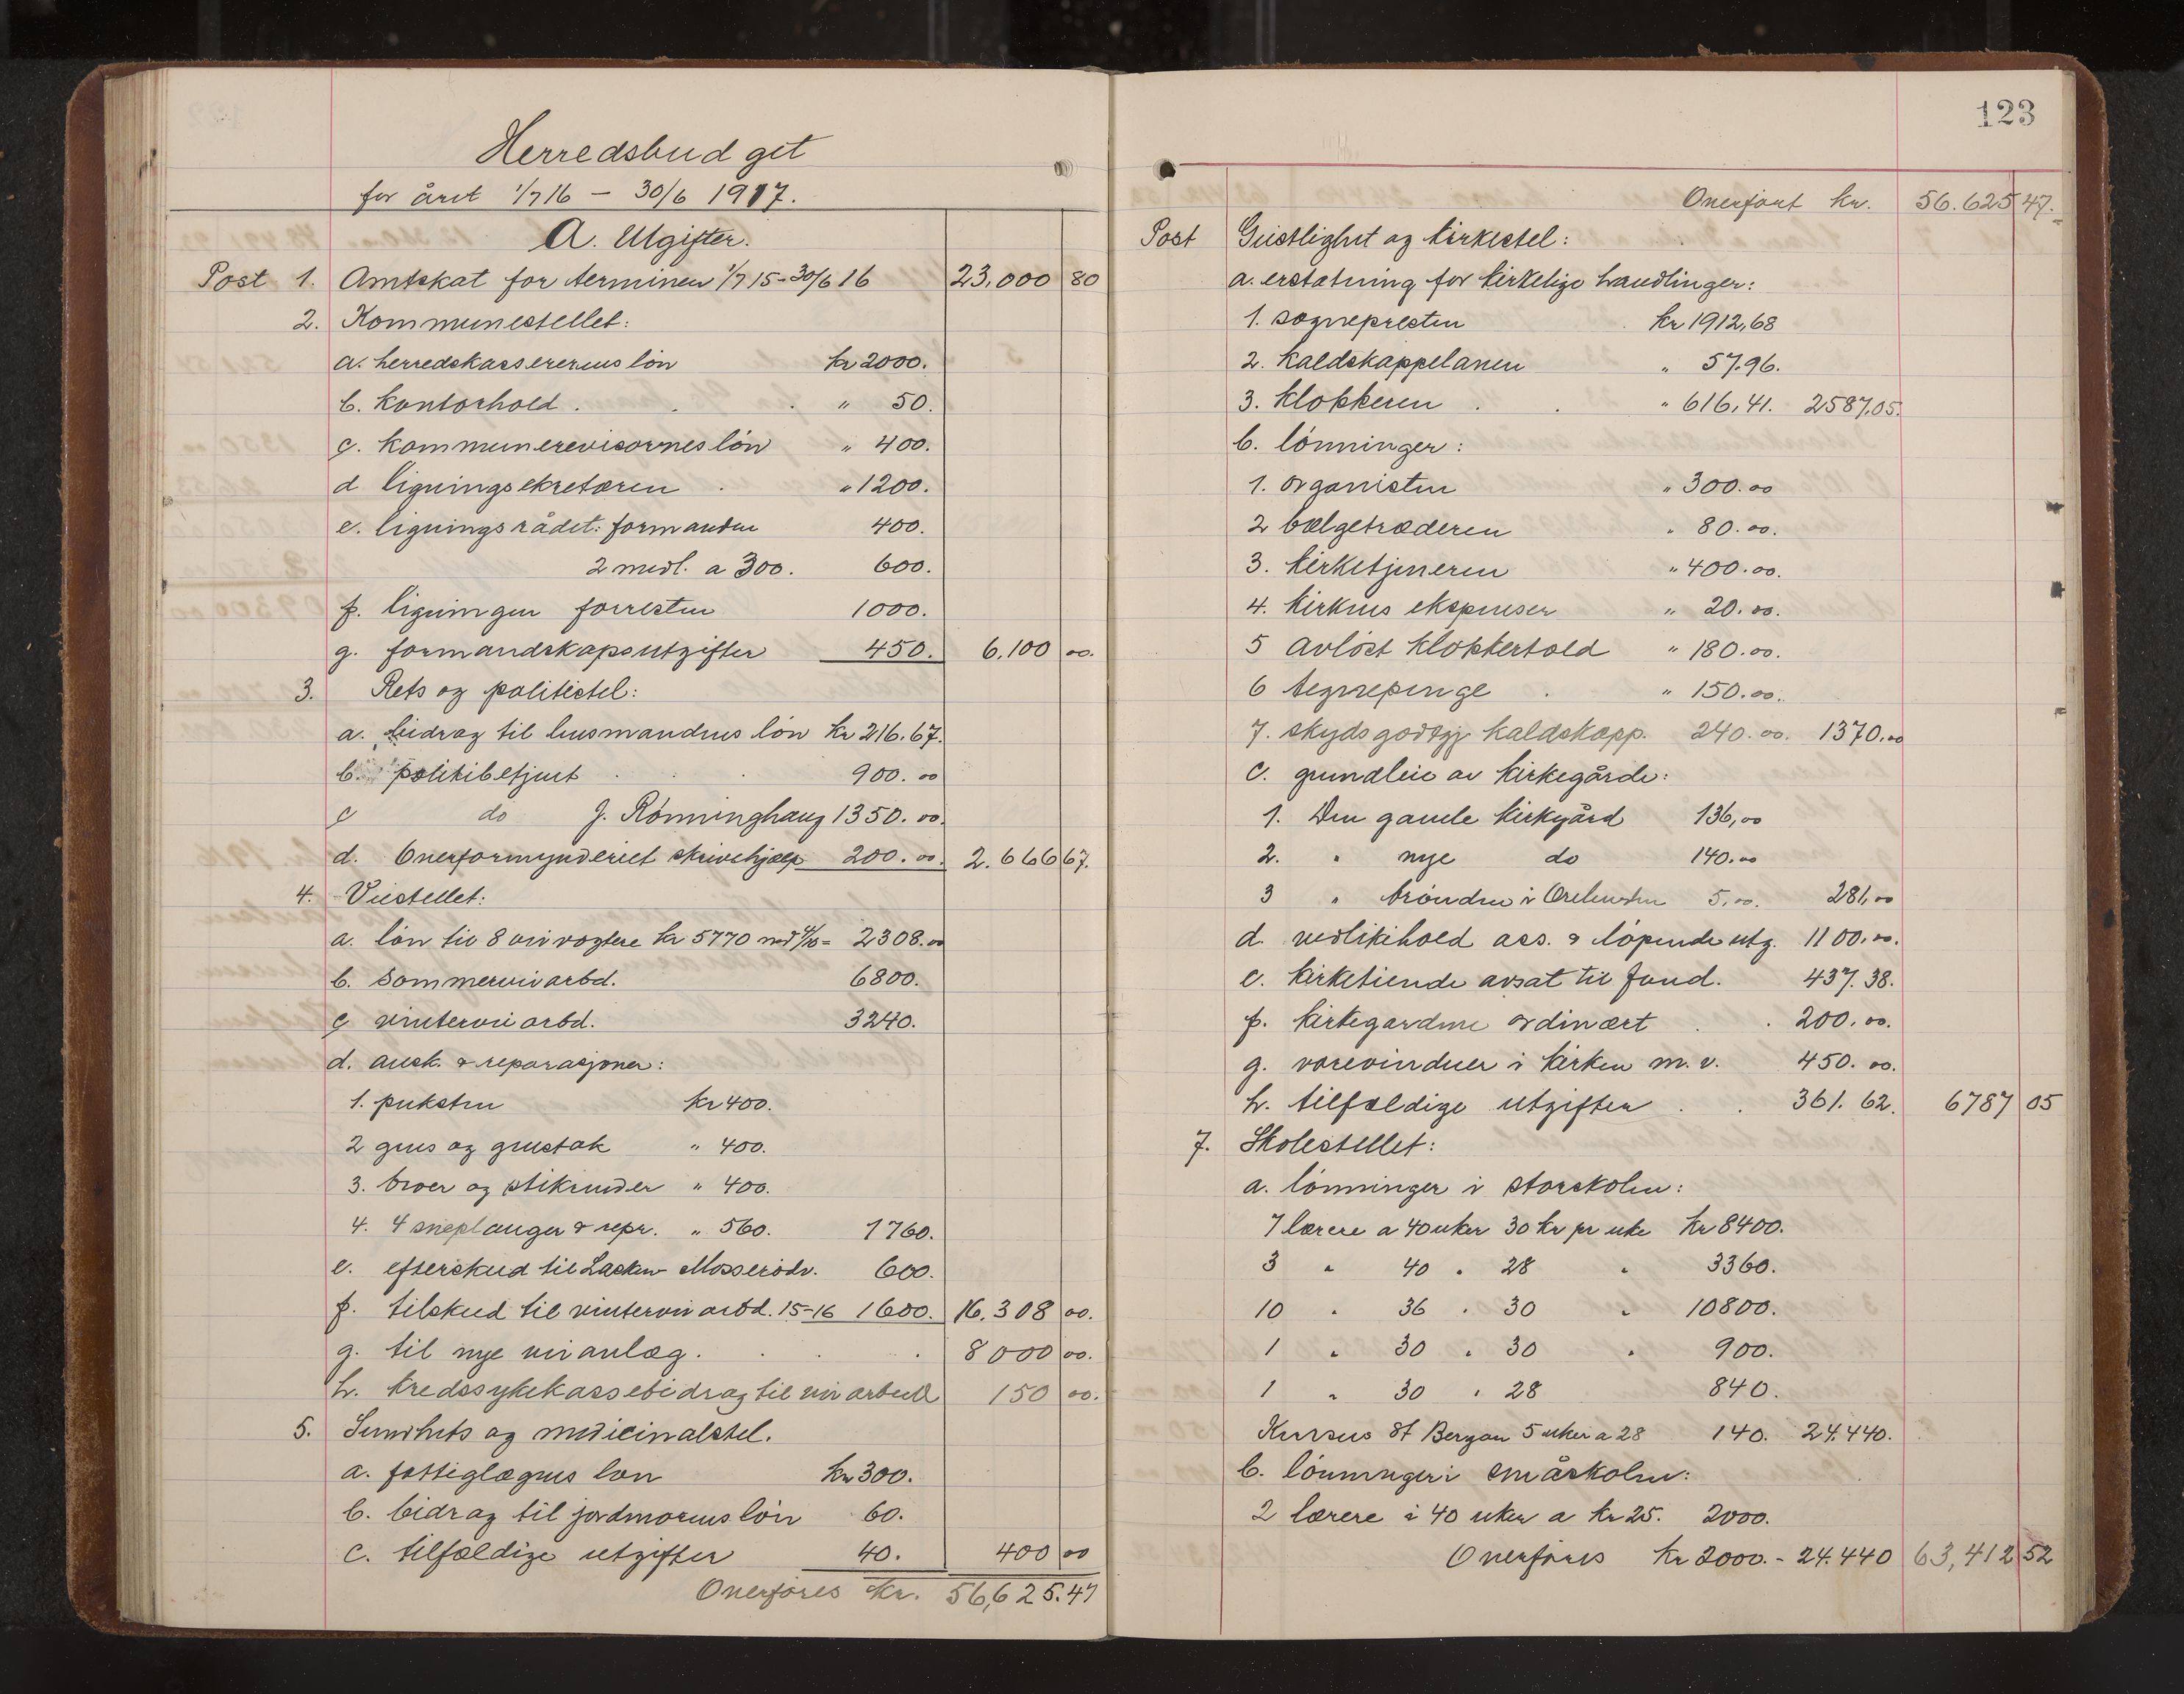 Herredsbudget
for året 1/7 16 – 30/6 1917.
A. Utgifter.
Post 1. Amtskat for terminen 1/7 15 - 30/6 16 23,000 80
2. Kommunestellet:
a. herredskassererens lön kr 2000.
b. kontorhold . . . " 50.
c. kommunerevisornes lön " 400.
d ligningsekretæren . " 1200.
e. ligningsrådet: formanden 400.
2 medl. a 300. 600.
f. ligningen forresten 1000.
g. formandskapsutgifter 450. 6,100 00.
3. Rets og politistel:
a. bidrag til lensmandens lön kr 216.67.
b. politibetjent . . 900.00
c do J. Rønninghaug 1350.00.
d. Overformynderiet skrivehjælp 200.00. 2.666 67.
4. Veistellet:
a. lön til 8 veivogtere kr 5770 med 4/10 = 2308.00
b. Sommerveiarbd. 6800.
c vinterveiarbd. 3240.
d. ansk. & reparasjoner:
1. puksten kr 400.
2 grus og grustak " 400.
3. broer og stikrender " 400.
4. 4 sneplauger & repr. " 560. 1760.
e. efterskud til Lacken Mosserödv. 600.
f. tilskud til vinterveiarbd. 15-16 1600. 16.308 00.
g. til nye veianlæg. . . . 8000 00.
h. kredssykekassebidrag til veiarbeid 150 00.
5. Sundhets og medicinalstel.
a. fattiglægens løn kr 300.
b. bidrag til jordmorens lön 60.
c. tilfældige utgifter 40. 400 00
Overföres kr. 56,625.47
123
Overført kr. 56.625 47.
Post Geistlighet og kirkestel:
a. erstatning for kirkelige handlinger:
1. sognepresten kr 1912,68
2. kaldskappelanen " 57.96.
3. klokkeren . . " 616,41. 2587.05.
b. lönninger:
1. organisten " 300.00
2 bælgetræderen " 80.00.
3. kirketjeneren " 400.00.
4. kirkens ekspenser " 20.00.
5 avlöst klokkertold " 180.00.
6 tegnepenge . " 150.00.
7. skydsgodtgj kaldskapp. 240.00. 1370.00
c. grundleie av kirkegårde:
1. Den gamle kirkegård 136,00
2. " nye do 140.00
3 " brönden i 5,00. 281,00
d. vedlikehold ass. & löpende utg. 1100.00.
e. kirketiende avsat til fond. 437.38.
f. kirkegardene ordinært . . 200.00.
g. varevinduer i kirken m. v. 450.00.
h. tilfældige utgifter . . 361.62. 6787 05
7. Skolestellet:
a. lönninger i storskolen:
7 lærere a 40 uker 30 kr pr uke kr 8400.
3 " 40 " 28 " 3360.
10 " 36 " 30 " 10800.
1 " 30 " 30 " 900.
1 " 30 " 28 840.
Kursus St Bergan 5 uker a 28 140. 24.440.
b. lönninger i småskolen:
2 lærere i 40 uker a kr 25. 2000.
Overføres kr 2000. - 24.440 63,412 52